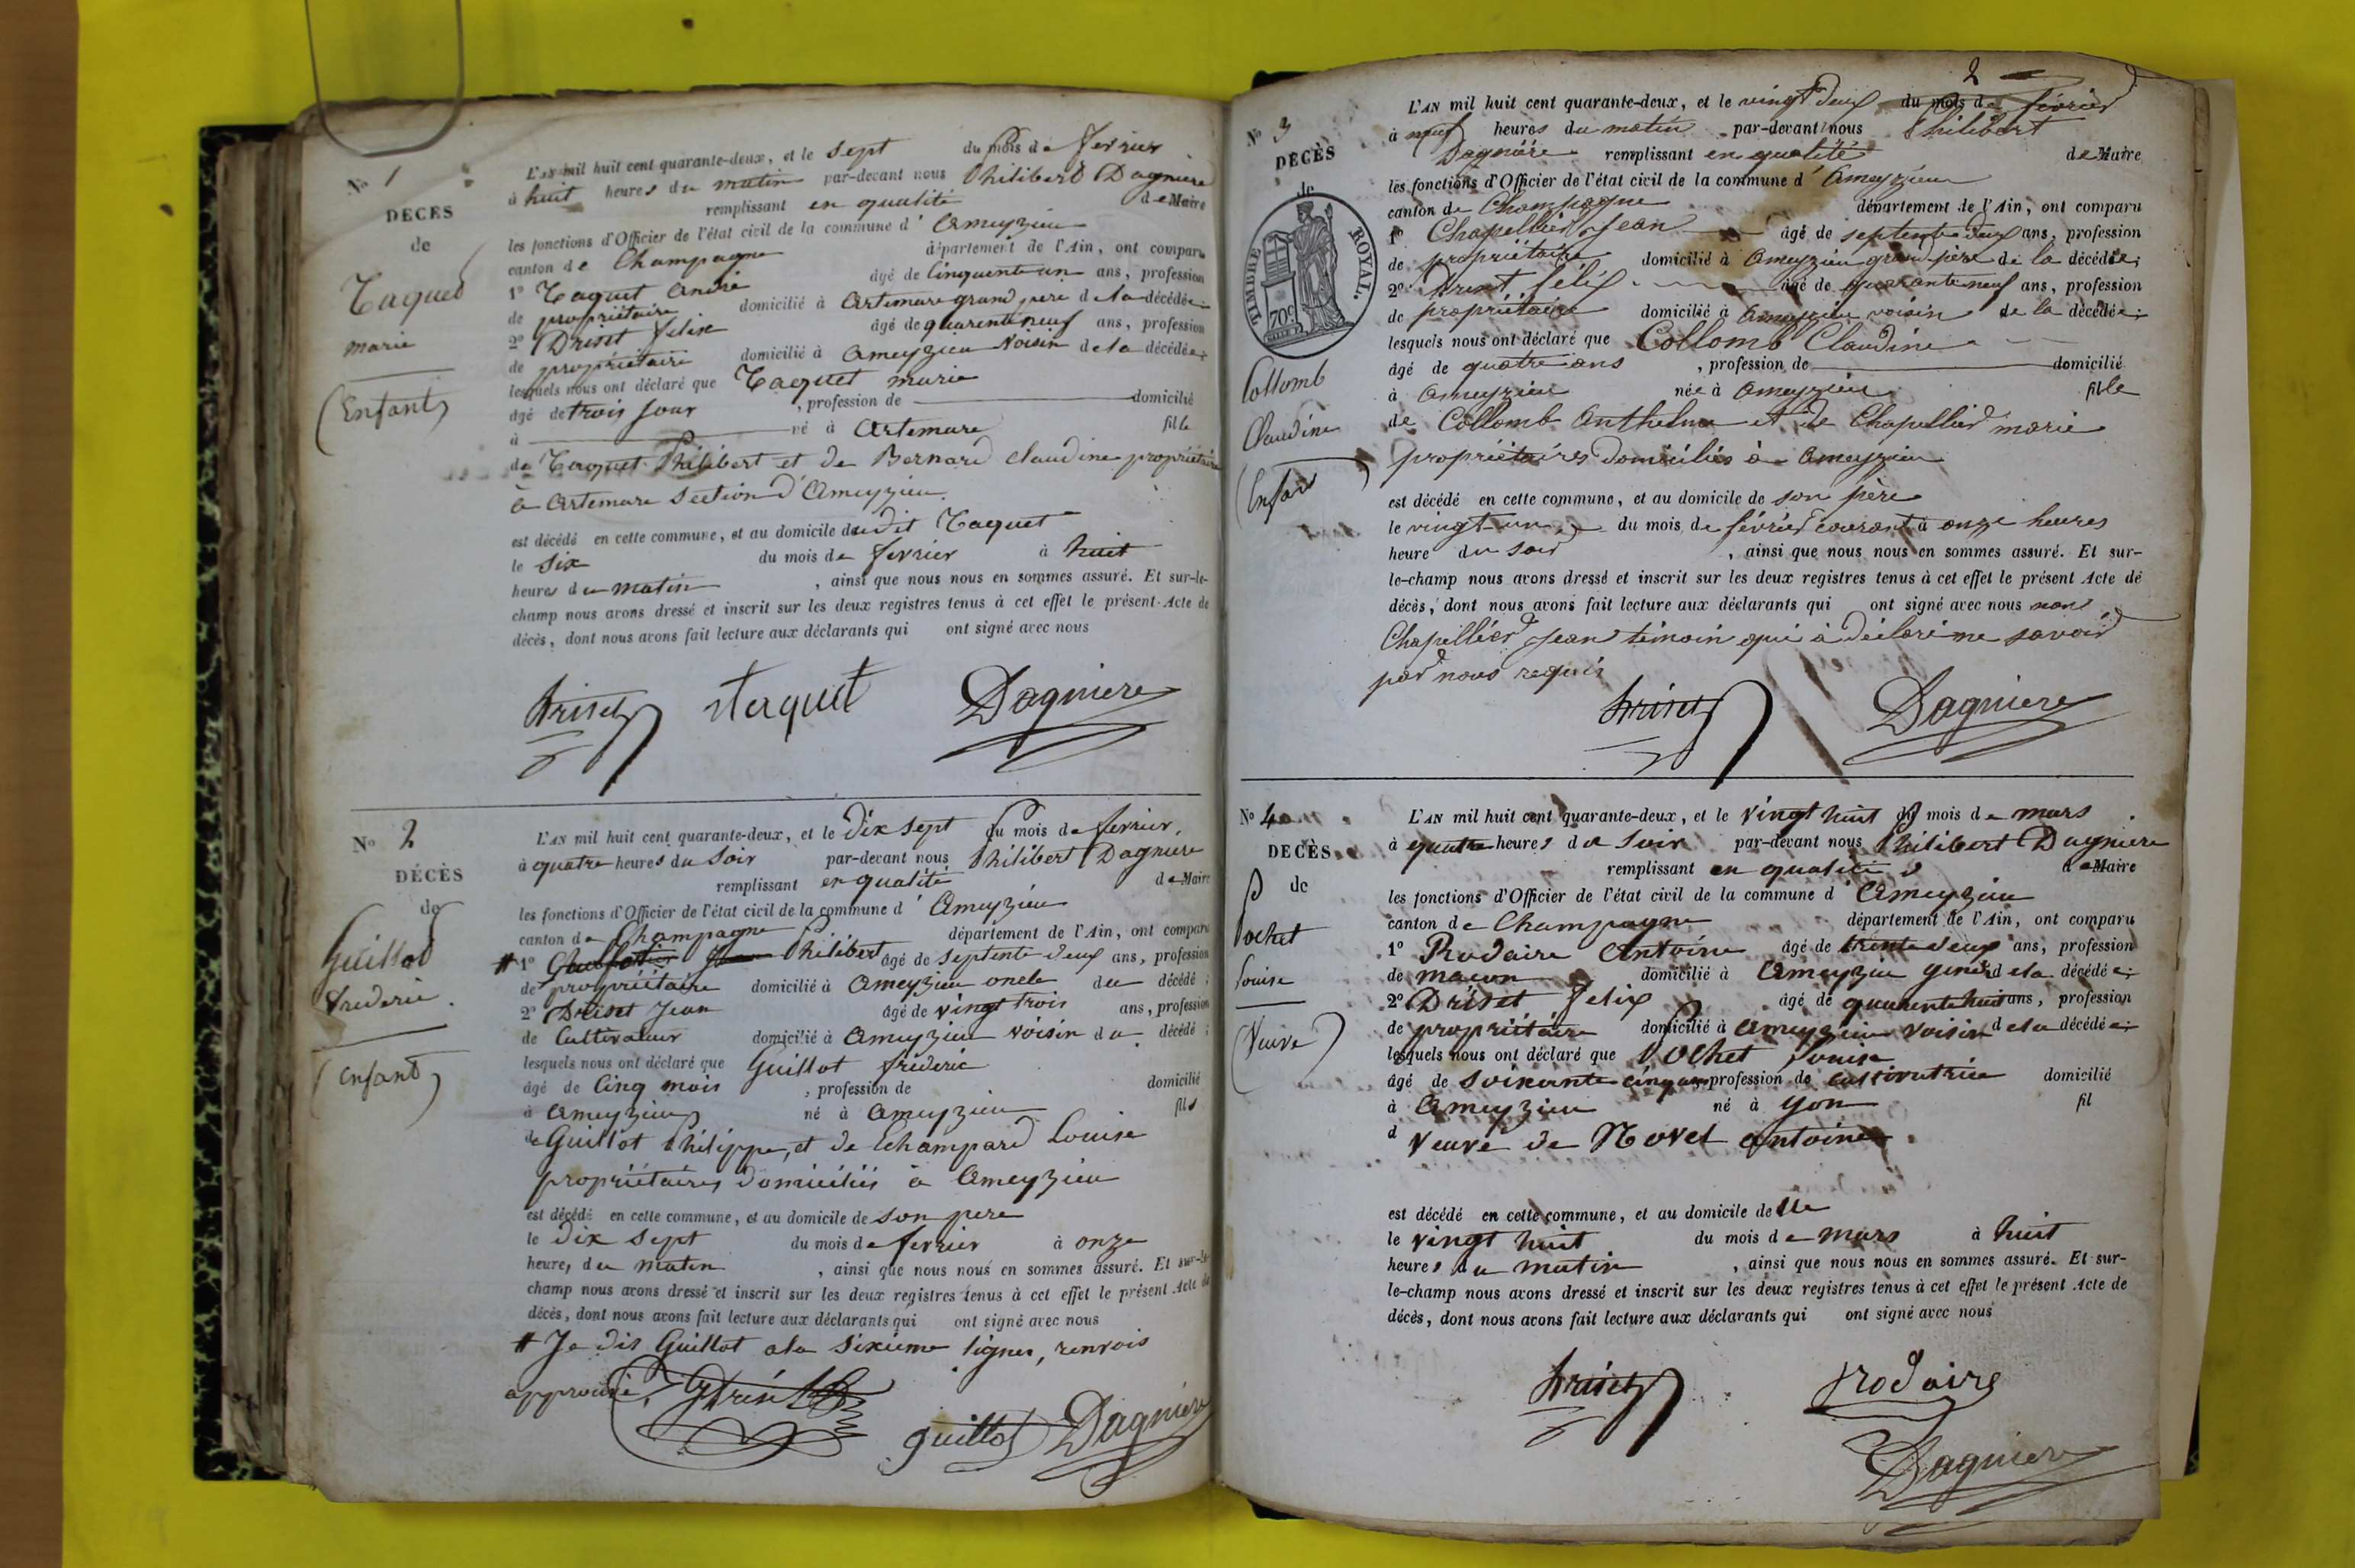 N° 1
DÉCÈS
de
Taquet
marie
(Enfant)
L'AN mil huit cent quarante-deux, et le sept du mois de fevrier
à huit heures du matin par-devant nous Philibert Dagniere
remplissant en qualité de Maire
les fonctions d'Officier de l'état civil de la commune d'Ameyzieu
canton de Champagne département de l'Ain, ont comparu
1° Taquet André âgé de Cinquante un ans, profession
de propriétaire domicilié à Artemare grand pere de la décédée
2° Driset félix âgé de quarente neuf ans, profession
de propriétaire domicilié à Ameyzieu voisin de la décédée;
lesquels nous ont déclaré que Taquet marie
âgé de trois jour, profession de domicilié
à né à Artemare fille
de Taquet Philibert et de Bernard Claudine propriétaire
à Artemare section d'Ameyzieu.
est décédé en cette commune, et au domicile dudit Taquet
le six du mois de fevrier à huit
heures du matin, ainsi que nous nous en sommes assuré. Et sur-le-
champ nous avons dressé et inscrit sur les deux registres tenus à cet effet le présent Acte de
décès, dont nous avons fait lecture aux déclarants qui ont signé avec nous
Driset Taquet Dagniere
N° 2
DÉCÈS
de
Guillot
frederic
(Enfant)
L'AN mil huit cent quarante-deux, et le Dix sept du mois de fevrier,
à quatre heures du Soir par-devant nous Philibert Dagniere
remplissant en qualité de Maire
les fonctions d'Officier de l'état civil de la commune d'Ameyzieu
canton de Champagne département de l'Ain, ont comparu
# 1° Philibert âgé de Septente deux ans, profession
de propriétaire domicilié à Ameyzieu oncle du décédé;
2° Driset Jean âgé de vingt trois ans, profession
de Cultivateur domicilié à Ameyzieu voisin du décédé;
lesquels nous ont déclaré que Guillot frederic
âgé de Cinq mois, profession de domicilié
à Ameyzieu né à Ameyzieu fils
de Guillot Philippe, et de Echampard Louise
propriétaires domiciliés à Ameyzieu
est décédé en cette commune, et au domicile de son pere
le dix sept du mois de fevrier à onze
heures du matin, ainsi que nous nous en sommes assuré. Et sur-le-
champ nous avons dressé et inscrit sur les deux registres tenus à cet effet le présent Acte de
décès, dont nous avons fait lecture aux déclarants qui ont signé avec nous
# Je dis Guillot a la Sixieme ligne, renvois
approuvé, Driset
guillot Dagniere
2
N° 3
DÉCÈS
de
TIMBRE ROYAL.
70c
Collomb
Claudine
(Enfant)
L'AN mil huit cent quarante-deux, et le vingt deux du mois de février
à neuf heures du matin par-devant nous Philibert
Dagnière remplissant en qualité de Maire
les fonctions d'Officier de l'état civil de la commune d'Ameyzieu
canton de Champagne département de l'Ain, ont comparu
1° Chapellier Jean âgé de septente deux ans, profession
de propriétaire domicilié à Ameyzieu grand-père de la décédée;
2° Driset félix âgé de quarante neuf ans, profession
de propriétaire domicilié à Ameyzieu voisin de la décédée;
lesquels nous ont déclaré que Collomb Claudine
âgé de quatre ans, profession de domicilié
à Ameyzieu née à Ameyzieu fille
de Collomb Anthelme et de Chapellier marie
propriétaires domiciliés à Ameyzieu
est décédé en cette commune, et au domicile de son père
le vingt-un du mois de février courant à onze heures
heure du soir, ainsi que nous nous en sommes assuré. Et sur-
le-champ nous avons dressé et inscrit sur les deux registres tenus à cet effet le présent Acte de
décès, dont nous avons fait lecture aux déclarants qui ont signé avec nous non
Chapellier Jean témoin qui à déclaré ne savoir
par nous requis
Driset Dagniere
N° 4
DÉCÈS
de
Pochet
Louise
(Veuve)
L'AN mil huit cent quarante-deux, et le Vingt huit du mois de mars
à quatre heures du Soir par-devant nous Philibert Dagniere
remplissant en qualité de Maire
les fonctions d'Officier de l'état civil de la commune d'Ameyzieu
canton de Champagne département de l'Ain, ont comparu
1° Rodaire Antoine âgé de trente deux ans, profession
de maçon domicilié à Ameyzieu gendre de la décédée;
2° Driset felix âgé de quarente huit ans, profession
de propriétaire domicilié à Ameyzieu voisin de la décédée;
lesquels nous ont déclaré que Pochet Louise
âgé de Soixante cinq ans, profession de cultivatrice domicilié
à Ameyzieu né à yon fil
d veuve de Novel Antoine.
est décédé en cette commune, et au domicile delle
le vingt huit du mois de mars à huit
heures du matin, ainsi que nous nous en sommes assuré. Et sur-
le-champ nous avons dressé et inscrit sur les deux registres tenus à cet effet le présent Acte de
décès, dont nous avons fait lecture aux déclarants qui ont signé avec nous
Driset rodaire
Dagniere